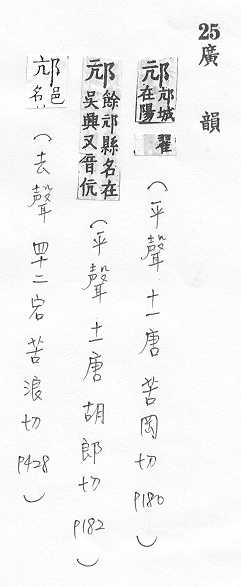 25 廣韻
邟 邟城在陽翟（平聲 十一唐 苦岡切 P180）
邟 餘邟縣名在吳興又音伉（平聲 十一唐 胡郎切 P182）
邟 邑名（去聲 四十二宕 苦浪切 P428）